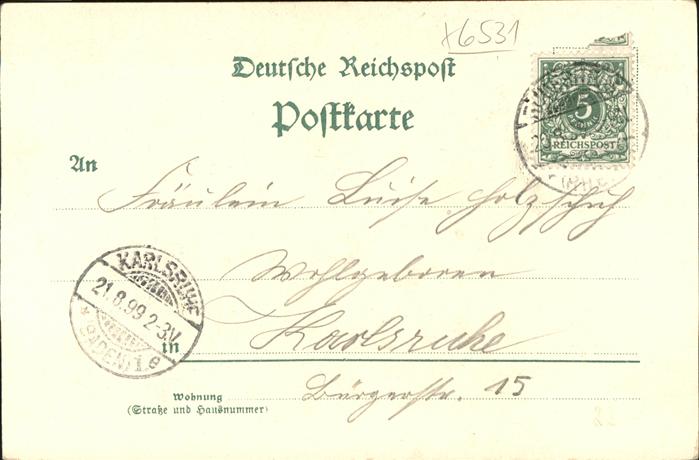 x6531
Deutsche Reichspost
Postkarte
5
REICHSPOST
An
Fräulein Luise Holzschuh
Wohlgeboren
KARLSRUHE
21.8.99 2-3V.
* (BADEN) 1.e
in Karlsruhe
Wohnung
(Straße und Hausnummer)
Bürgerstr. 15